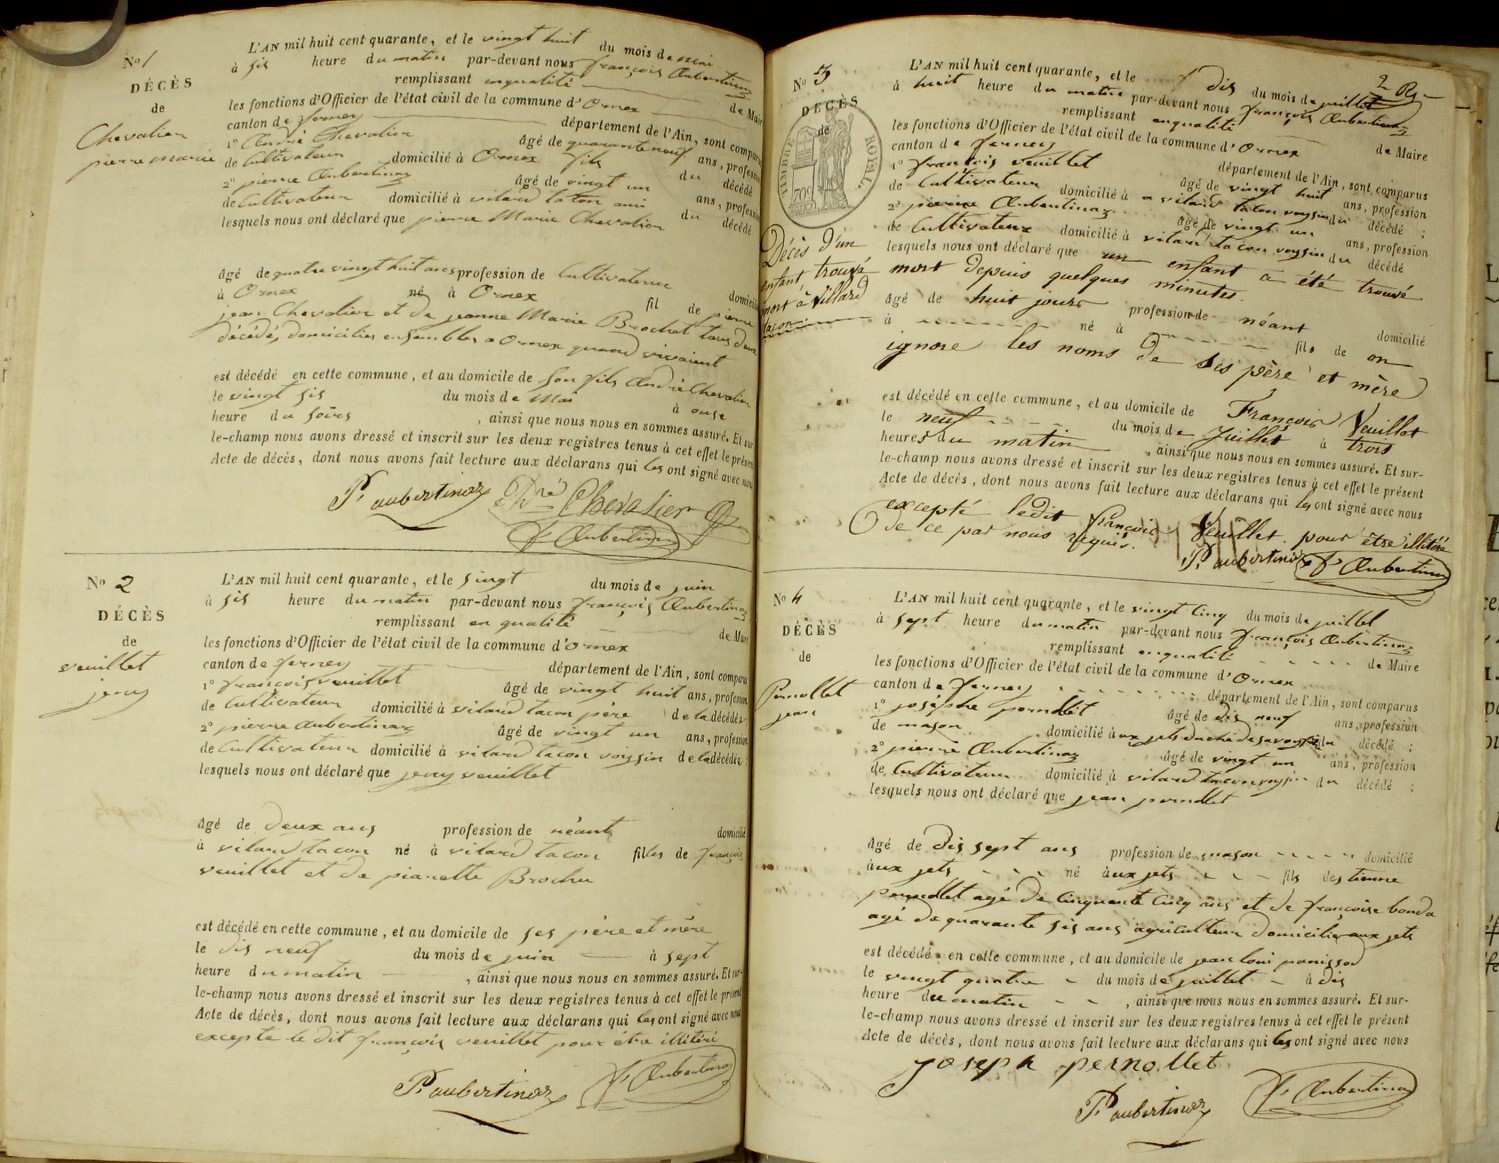 No 1
DÉCÈS
de
Chevalier
pierre marie
L'AN mil huit cent quarante, et le vingt huit du mois de mai
à six heure du matin par-devant nous françois Aubertinaz
remplissant en qualité de Maire
les fonctions d'Officier de l'état civil de la commune d'Ornex
canton de ferney département de l'Ain, sont comparus
1o André Chevalier âgé de quarante neuf ans, profession
de Cultivateur domicilié à Ornex fils du décédé
2o pierre Aubertinaz âgé de vingt un ans, profession
de Cultivateur domicilié à vilard tacon ami du décédé
lesquels nous ont déclaré que pierre Marie Chevalier
âgé de quatre vingt huit ans profession de Cultivateur domicilié
à Ornex né à Ornex fil de pierre
jean Chevalier et de jeanne Marie Brochet tous deux
décédés domiciliés ensembles a Ornex quand vivaient
est décédé en cette commune, et au domicile de son fils André Chevalier
le vingt six du mois de Mai à onse
heure du soires , ainsi que nous nous en sommes assuré. Et sur-
le-champ nous avons dressé et inscrit sur les deux registres tenus à cet effet le présent
Acte de décès, dont nous avons fait lecture aux déclarans qui les ont signé avec nous
P. aubertinaz Dré Chevalier
fs Aubertinaz
No 2
DÉCÈS
de
veuillet
jeny
L'AN mil huit cent quarante, et le vingt du mois de juin
à six heure du matin par-devant nous françois Aubertinaz
remplissant en qualité de Maire
les fonctions d'Officier de l'état civil de la commune d'Ornex
canton de ferney département de l'Ain, sont comparus
1o françois veuillet âgé de vingt huit ans, profession
de Cultivateur domicilié à vilard tacon père de la décédée
2o pierre aubertinaz âgé de vingt un ans, profession
de Cultivateur domicilié à vilard tacon voysin de la décédée
lesquels nous ont déclaré que jeny veuillet
âgé de deux ans profession de néant domicilié
à vilard tacon né à vilard tacon filles de françois
veuillet et de pianette Brochu
est décédé en cette commune, et au domicile de ses père et mère
le dix neuf du mois de juin à sept
heure du matin , ainsi que nous nous en sommes assuré. Et sur-
le-champ nous avons dressé et inscrit sur les deux registres tenus à cet effet le présent
Acte de décès, dont nous avons fait lecture aux déclarans qui les ont signé avec nous
excepte le dit françois veuillet pour être illitéré
P. aubertinaz fs Aubertinaz
2
No 3
DÉCÈS
de
TIMBRE ROYAL.
Décès d'un
enfant trouvé
mort à Villard
tacon
L'AN mil huit cent quarante, et le dix du mois de juillet
à huit heure du matin par-devant nous françois Aubertinaz
remplissant en qualité de Maire
les fonctions d'Officier de l'état civil de la commune d'Ornex
canton de Ferney département de l'Ain, sont comparus
1o françois veuillet âgé de vingt huit ans, profession
de Cultivateur domicilié à vilard tacon voysin du décédé ;
2o pierre Aubertinaz âgé de vingt un ans, profession
de Cultivateur domicilié à vilard tacon voysin du décédé
lesquels nous ont déclaré que un enfant a été trouvé
mort depuis quelques minutes.
âgé de huit jours profession de néant domicilié
à né à fils de on
ignore les noms de ses père et mère
est décédé en cette commune, et au domicile de François Veuillet
le neuf du mois de Juillet à trois
heures du matin , ainsi que nous nous en sommes assuré. Et sur-
le-champ nous avons dressé et inscrit sur les deux registres tenus à cet effet le présent
Acte de décès, dont nous avons fait lecture aux déclarans qui les ont signé avec nous
excepté ledit françois Veuillet pour être illitéré
de ce par nous requis.
P. aubertinaz fs Aubertinaz
No 4
DÉCÈS
de
Pernollet
jean
L'AN mil huit cent quarante, et le vingt cinq du mois de juillet
à sept heure du matin par-devant nous françois Aubertinaz
remplissant en qualité de Maire
les fonctions d'Officier de l'état civil de la commune d'Ornex
canton de ferney département de l'Ain, sont comparus
1o josephe pernollet âgé de dix neuf ans, profession
de mason domicilié aux jets duché de savoye du décédé ;
2o pierre Aubertinaz âgé de vingt un ans, profession
de Cultivateur domicilié à vilard tacon voysin du décédé ;
lesquels nous ont déclaré que jean pernollet
âgé de dix sept ans profession de mason domicilié
aux jets né aux jets fils de etienne
pernollet agé de cinquante cinq ans et de françoise
agé de quarante six ans agriculteur domicilier aux jets
est décédé en cette commune, et au domicile de jean loui panissod
le vingt quatre du mois de juillet à dix
heure du matin , ainsi que nous nous en sommes assuré. Et sur-
le-champ nous avons dressé et inscrit sur les deux registres tenus à cet effet le présent
Acte de décès, dont nous avons fait lecture aux déclarans qui les ont signé avec nous
joseph pernollet
P. aubertinaz fs Aubertinaz